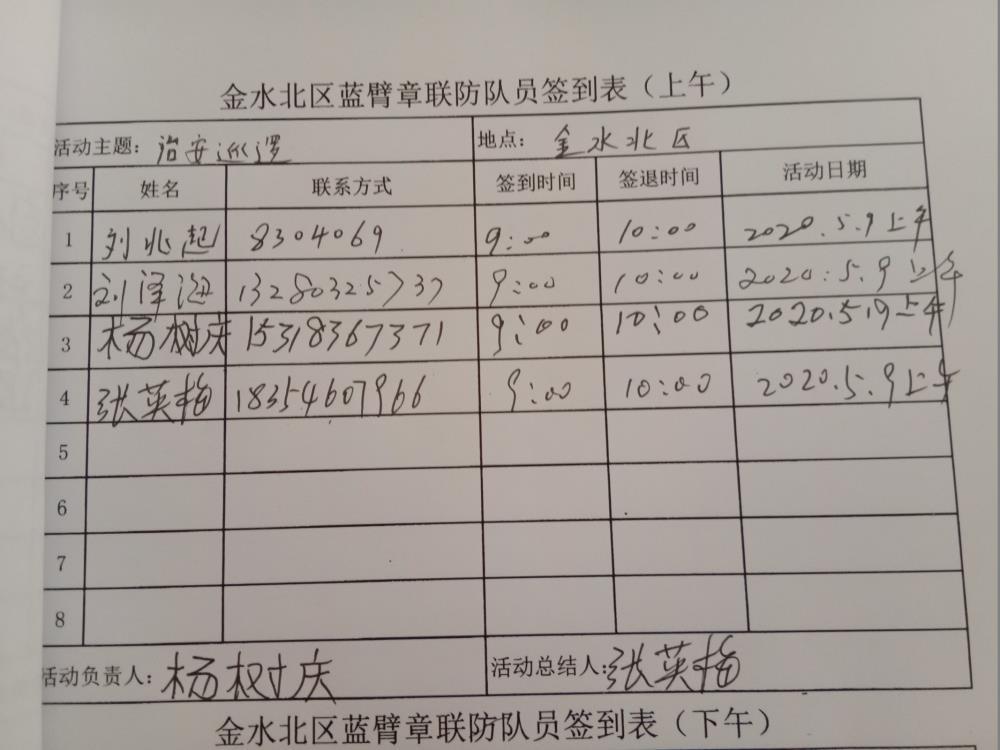 金水北区蓝臂章联防队员签到表（上午）
活动主题：治安巡逻 地点：金水北区
序号 姓名 联系方式 签到时间 签退时间 活动日期
1 刘兆起 8304069 9:00 10:00 2020.5.9上午
2 刘泽海 13280325737 9:00 10:00 2020.5.9上午
3 杨树庆 15318367371 9:00 10:00 2020.5.9上午
4 张英梅 18354607966 9:00 10:00 2020.5.9上午
5
6
7
8
活动负责人：杨树庆 活动总结人：张英梅
金水北区蓝臂章联防队员签到表（下午）